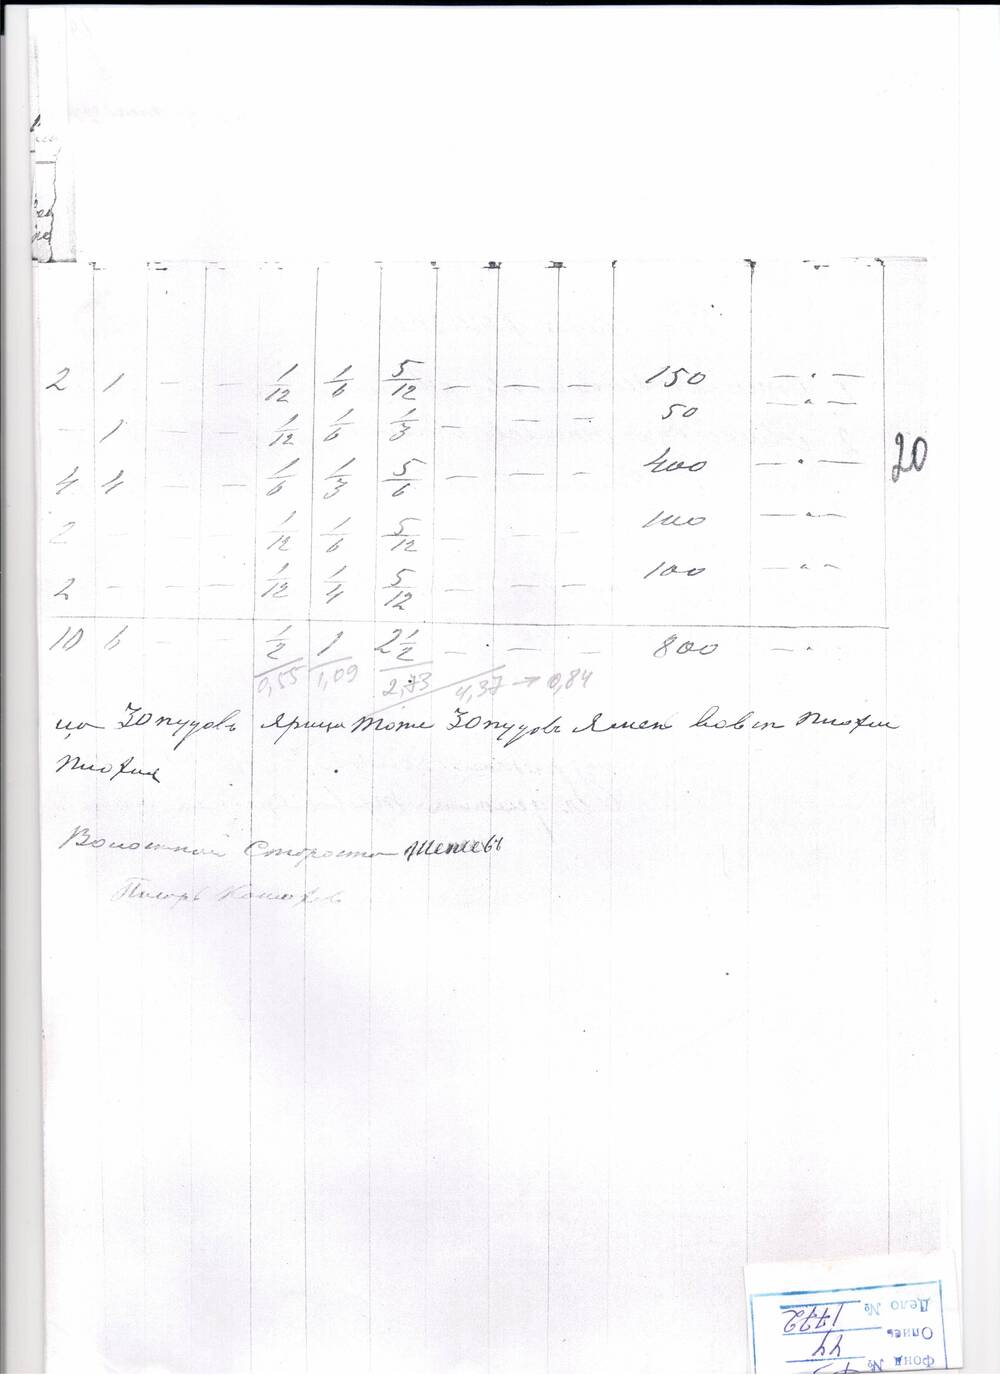 2 1 — — 1/12 1/6 5/12 — — — 150 — " —
— 1 — — 1/12 1/6 1/3 — — — 50 — " —
4 4 — — 1/6 1/3 5/6 — — — 400 — " —
2 — — — 1/12 1/6 5/12 — — — 100 — " —
2 — — — 1/12 1/4 5/12 — — — 100 — " —
10 6 — — 1/2 1 2 1/2 — — — 800 — " —
0,55 1,09 2,73 4,37 → 0,84
20
ца 30 пудовъ ярица тоже 30 пудовъ
Волостной Староста
Писарь
Фонд №
Опись 44
Дело № 1772